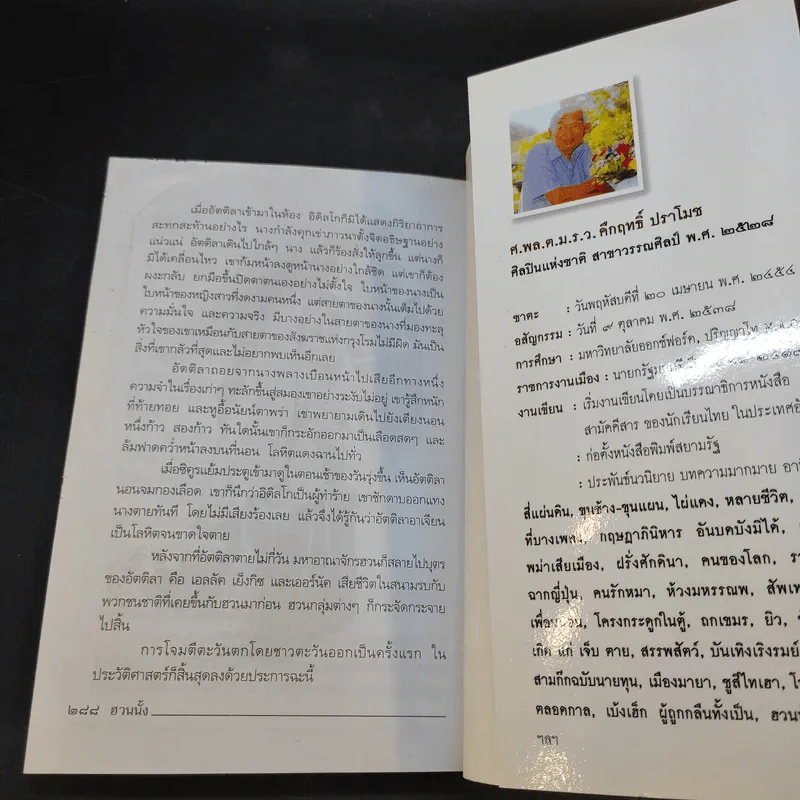 เมื่ออัตติลาเข้ามาในห้อง อิดิลโกก็มิได้แสดงกิริยาอาการ
สะทกสะท้านอย่างไร นางกำลังคุกเข่าภาวนาตั้งจิตอธิษฐานอย่าง
แน่วแน่ อัตติลาเดินไปใกล้ๆ นาง แล้วก็ร้องสั่งให้ลุกขึ้น แต่นางก็
มิได้เคลื่อนไหว เขาก้มหน้าลงดูหน้านางอย่างใกล้ชิด แต่เขาก็ต้อง
ผงะกลับ ยกมือขึ้นปิดตาตนเองอย่างไม่ตั้งใจ ใบหน้าของนางเป็น
ใบหน้าของหญิงสาวที่งดงามคนหนึ่ง แต่สายตาของนางนั้นเต็มไปด้วย
ความมั่นใจ และความจริง มีบางอย่างในสายตาของนางที่มองทะลุ
หัวใจของเขาเหมือนกับสายตาของสังฆราชแห่งกรุงโรมไม่มีผิด มันเป็น
สิ่งที่เขากลัวที่สุดและไม่อยากพบเห็นอีกเลย
อัตติลาถอยจากนางพลางเบือนหน้าไปเสียอีกทางหนึ่ง
ความจำในเรื่องเก่าๆ ทะลักขึ้นสู่สมองเขาอย่างระงับไม่อยู่ เขารู้สึกหนัก
ที่ท้ายทอย และหูอื้อนัยน์ตาพร่า เขาพยายามเดินไปยังเตียงนอน
หนึ่งก้าว สองก้าว ทันใดนั้นเขาก็กระอักออกมาเป็นเลือดสดๆ และ
ล้มฟาดคว่ำหน้าลงบนที่นอน โลหิตแดงฉานไปทั่ว
เมื่อซิคูรแย้มประตูเข้ามาดูในตอนเช้าของวันรุ่งขึ้น เห็นอัตติลา
นอนจมกองเลือด เขาก็นึกว่าอิดิลโกเป็นผู้ทำร้าย เขาชักดาบออกแทง
นางตายทันที โดยไม่มีเสียงร้องเลย แล้วจึงได้รู้กันว่าอัตติลาอาเจียน
เป็นโลหิตจนขาดใจตาย
หลังจากที่อัตติลาตายไม่กี่วัน มหาอาณาจักรฮวนก็สลายไปบุตร
ของอัตติลา คือ เอลลัค เย็งกิซ และเออร์นัค เสียชีวิตในสนามรบกับ
พวกชนชาติที่เคยขึ้นกับฮวนมาก่อน ฮวนกลุ่มต่างๆ ก็กระจัดกระจาย
ไปสิ้น
การโจมตีตะวันตกโดยชาวตะวันออกเป็นครั้งแรก ใน
ประวัติศาสตร์ก็สิ้นสุดลงด้วยประการฉะนี้
๒๘๘ ฮวนนั้ง
ศ.พล.ต.ม.ร.ว. คึกฤทธิ์ ปราโมช
ศิลปินแห่งชาติ สาขาวรรณศิลป์ พ.ศ. ๒๕๒๘
ชาตะ : วันพฤหัสบดีที่ ๒๐ เมษายน พ.ศ. ๒๔๕๔
อสัญกรรม : วันที่ ๙ ตุลาคม พ.ศ. ๒๕๓๘
การศึกษา : มหาวิทยาลัยออกซ์ฟอร์ด, ปริญญาโท
ราชการงานเมือง : นายกรัฐมนตรี
งานเขียน : เริ่มงานเขียนโดยเป็นบรรณาธิการหนังสือ
สามัคคีสาร ของนักเรียนไทย ในประเทศ
: ก่อตั้งหนังสือพิมพ์สยามรัฐ
: ประพันธ์นวนิยาย บทความมากมาย
สี่แผ่นดิน, ขุนช้าง-ขุนแผน, ไผ่แดง, หลายชีวิต,
ที่บางเพลง, กฤษฎาภินิหาร อันบดบังมิได้,
พม่าเสียเมือง, ฝรั่งศักดินา, คนของโลก,
ฉากญี่ปุ่น, คนรักหมา, ห้วงมหรรณพ,
เพื่อนนอน, โครงกระดูกในตู้, ถกเขมร, ยิว,
เกิด แก่ เจ็บ ตาย, สรรพสัตว์, บันเทิงเริงรมย์
สามก๊กฉบับนายทุน, เมืองมายา, ซูสีไทเฮา,
ตลอดกาล, เบ้งเฮ็ก ผู้ถูกกลืนทั้งเป็น,
ฯลฯ